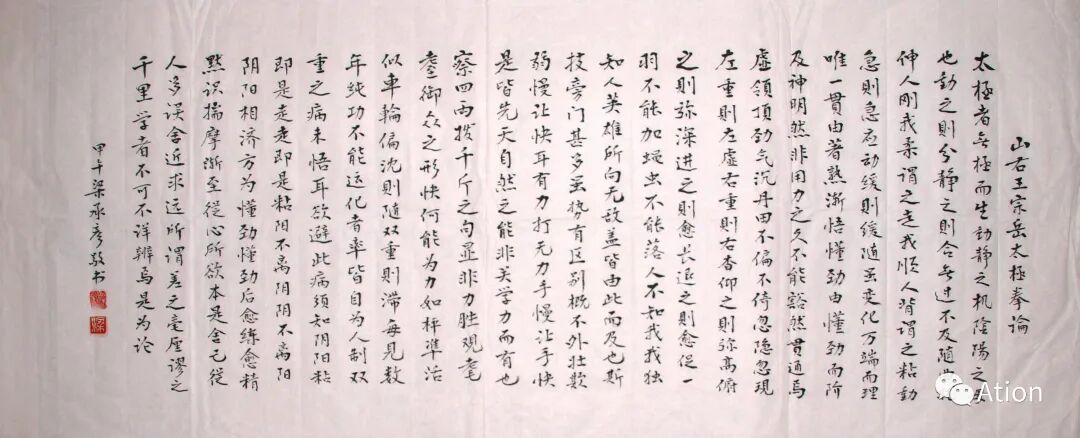 山右王宗岳太极拳论
太極者无極而生動靜之机陰陽之母
也動之則分靜之則合无过不及随
伸人剛我柔謂之走我順人背謂之粘動
急則急应动緩則緩随虽变化万端而理
唯一貫由著熟漸悟懂劲由懂劲而阶
及神明然非用力之久不能豁然貫通焉
虚領頂劲气沉丹田不偏不倚忽隐忽現
左重則左虚右重則右杳仰之則弥高俯
之則弥深進之則愈長退之則愈促一
羽不能加蝇虫不能落人不知我我独
知人英雄所向无敌盖皆由此而及也斯
技旁门甚多虽势有区别概不外壮欺
弱慢让快耳有力打无力手慢让手快
是皆先天自然之能非关学力而有也
察四两拨千斤之句显非力胜观耄
耋御众之形快何能为力如枰準活
似車輪偏沈則随双重則滞每見数
年纯功不能运化者率皆自为人制双
重之病未悟耳欲避此病须知阴阳粘
即是走走即是粘阳不离阴阴不离阳
阴阳相济方为懂劲懂劲后愈练愈精
默识揣摩渐至從心所欲本是舍己從
人多误舍近求远所谓差之毫厘谬之
千里学者不可不详辨焉是为论
甲午梁承彦敬书
Ation